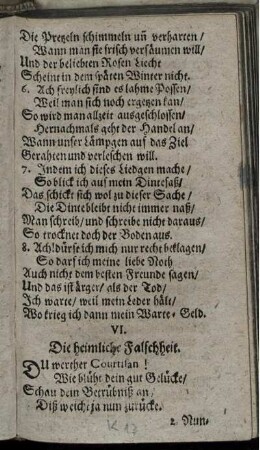 Die Pretzeln schimmeln uñ verharten/
Wann man sie frisch versäumen will/
Und der beliebten Rosen Liecht
Scheint in dem späten Winter nicht.
6. Ach freylich sind es lahme Possen/
Weil man sich noch ergetzen kan/
So wird man allzeit ausgeschlossen/
Hernachmals geht der Handel an/
Wann unser Lämpgen auf das Ziel
Gerahten und verleschen will.
7. Indem ich dieses Liedgen mache/
So blick ich auf mein Dintefaß/
Das schickt sich wol zu dieser Sache/
Die Dinte bleibt nicht immer naß/
Man schreib/ und schreibe nicht daraus/
So trocknet doch der Boden aus.
8. Ach! dürfe ich mich nur recht beklagen/
So darf ich meine liebe Noth
Auch nicht dem besten Freunde sagen/
Und das ist ärger/ als der Tod/
Ich warte/ weil mein Leder hält/
Wo krieg ich dann mein Warte-Geld.
VI.
Die heimliche Falschheit.
DU werther Courtisan!
Wie blüht dein gut Gelücke/
Schau dein Betrübniß an/
Diß weicht ja nun zurücke.
2. Nun-